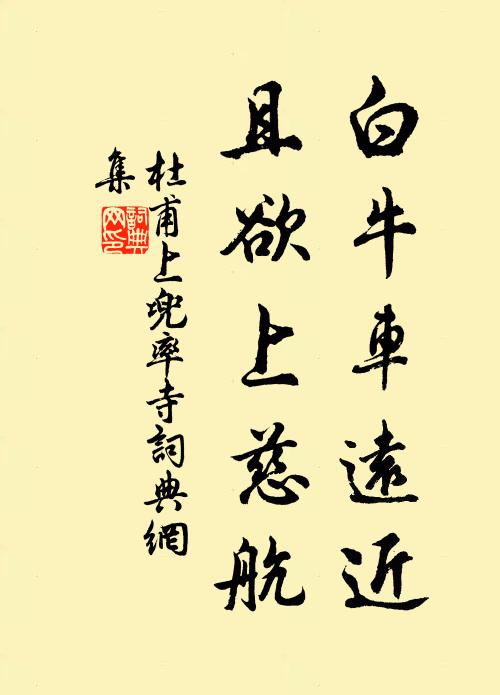 白牛車遠近
且欲上慈航
杜甫上兜率寺詞典網
集
詞典網印